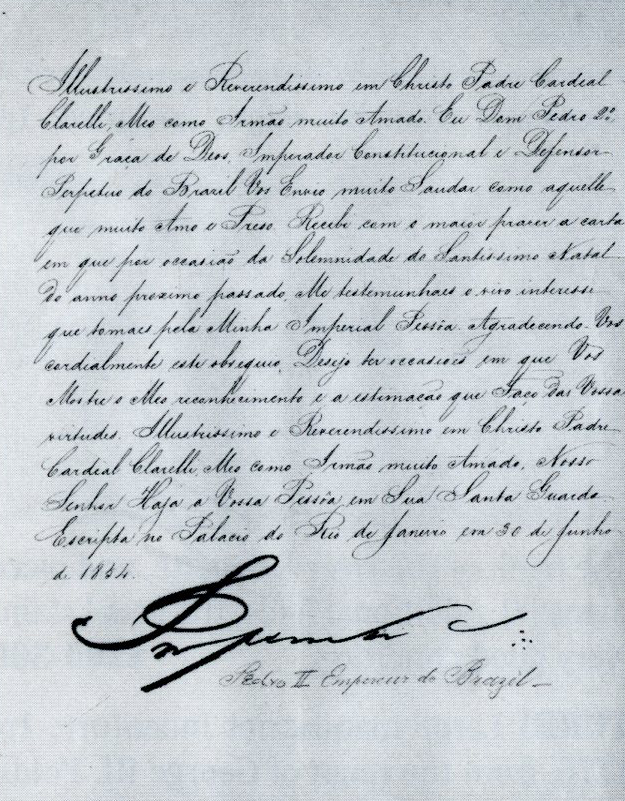 Illustrissimo e Reverendissimo em Christo Padre Cardeal
Clarelli, Meo como Irmão muito Amado. Eu Dom Pedro 2º,
por Graça de Deos, Imperador Constitucional e Defensor
Perpetuo do Brazil Vos Envio muito Saudar como aquelle
que muito Amo e Preso. Recebi com o maior prazer a carta
em que por occasião da Solemnidade do Santissimo Natal
do anno proximo passado, Me testemunhaes o vivo interesse
que tomaes pela Minha Imperial Pessôa. Agradecendo-Vos
cordialmente este obsequio, Desejo ter occasiões em que Vos
Mostre o Meo reconhecimento e a estimação que Faço das Vossas
virtudes. Illustrissimo e Reverendissimo em Christo Padre
Cardeal Clarelli, Meo como Irmão muito Amado, Nosso
Senhor Haja a Vossa Pessôa em Sua Santa Guarda.
Escripta no Palacio do Rio de Janeiro em 30 de Junho
de 1854.
Imperador
Pedro II Empereur do Brazil